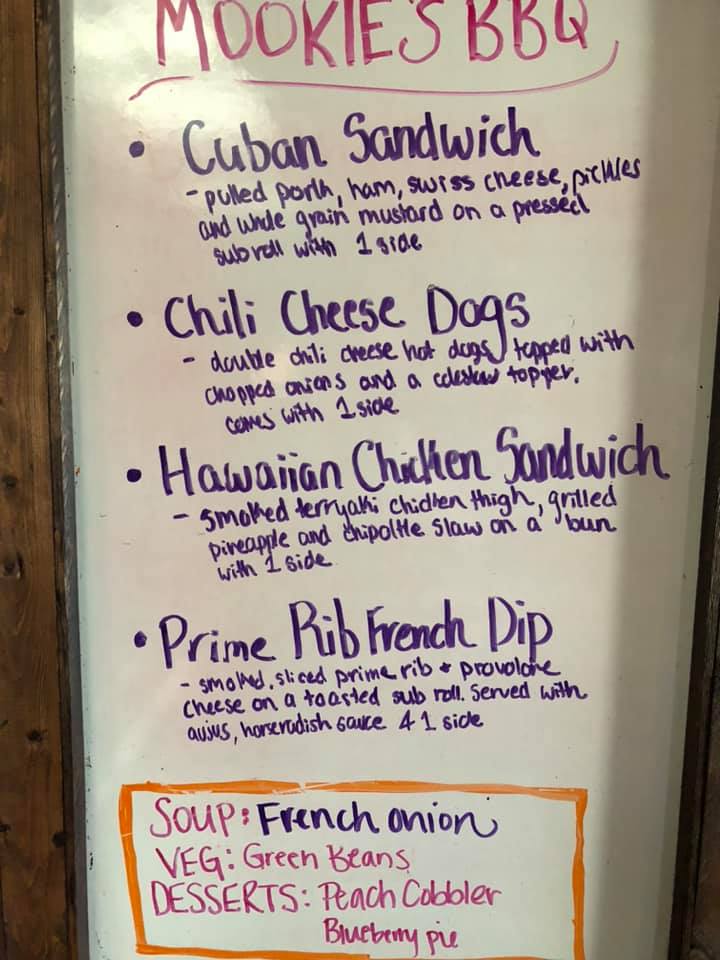 MOOKIE'S BBQ
• Cuban Sandwich
- pulled pork, ham, swiss cheese, pickles
and whole grain mustard on a pressed
sub roll with 1 side
• Chili Cheese Dogs
- double chili cheese hot dogs topped with
chopped onions and a coleslaw topper.
comes with 1 side
• Hawaiian Chicken Sandwich
- smoked terryaki chicken thigh, grilled
pineapple and chipoltle slaw on a bun
with 1 side
• Prime Rib French Dip
- smoked, sliced prime rib + provolone
cheese on a toasted sub roll. Served with
aujus, horseradish sauce & 1 side
SOUP: French onion
VEG: Green Beans
DESSERTS: Peach Cobbler
Blueberry pie